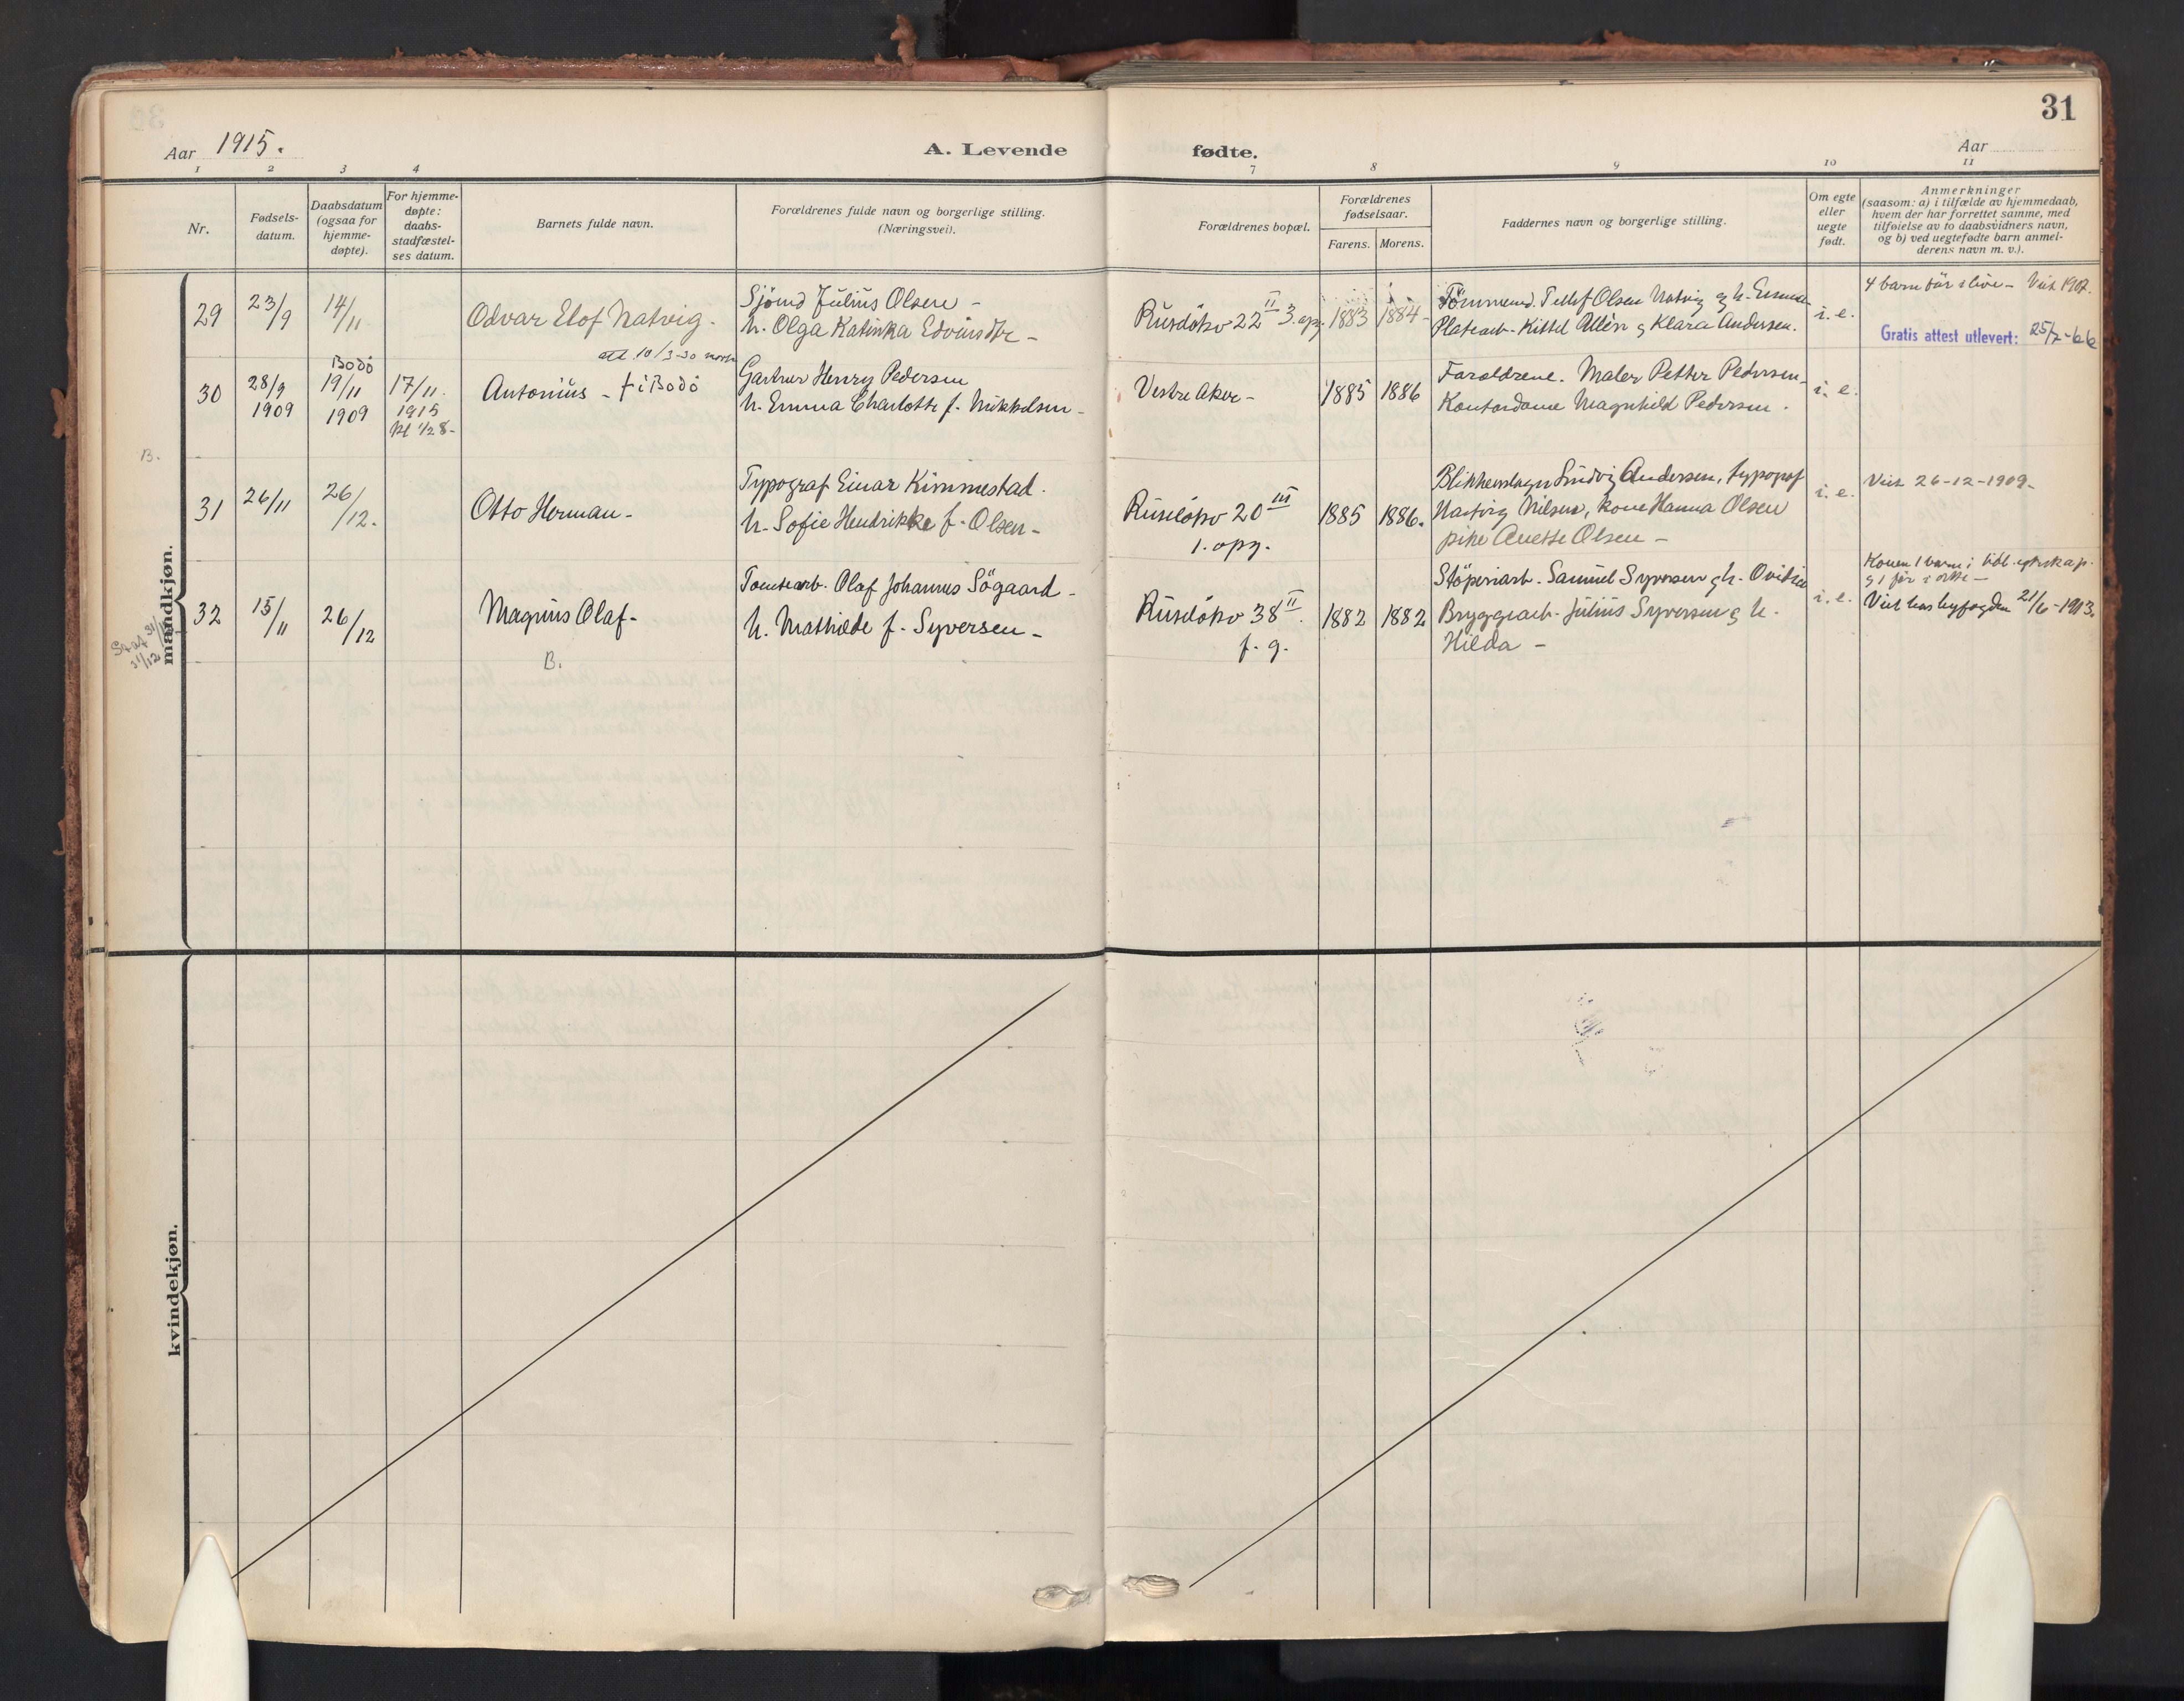 31
Aar 1915.
A. Levende fødte.
Aar
1 2 3 4 7 8 9 10 11
Nr.
Fødsels-
datum.
Daabsdatum
(ogsaa for
hjemme-
døpte).
For hjemme-
døpte:
daabs-
stadfæstel-
ses datum.
Barnets fulde navn.
Forældrenes fulde navn og borgerlige stilling.
(Næringsvei).
Forældrenes bopæl.
Forældrenes
fødselsaar.
Farens. Morens.
Faddernes navn og borgerlige stilling.
Om egte
eller
uegte
født.
Anmerkninger
(saasom: a) i tilfælde av hjemmedaab,
hvem der har forrettet samme, med
tilføielse av to daabsvidners navn,
og b) ved uegtefødte barn anmel-
derens navn m. v.).
mandkjøn.
29
23/9
14/11
Odvar Elof Natvig.
att. 10/3-30
Sjömd Julius Olsen -
h. Olga Katinka Edvinsdtr -
Ruselökv 22 II 3. opg.
1883
1884-
Tömmermd. Tellef Olsen Natvig og h. Emma
Platearb. Kittel Allén og Klara Andersen.
i. e.
4 barn før i live - Viet 1902.
Gratis attest utlevert: 25/2-66
30
28/9
1909
Bodö
19/11
1909
17/11.
1915
Kl 1/2 8-
Antonius - † i Bodö
Gartner Henry Pedersen
h. Emma Charlotte f. Mikkelsen -
Vestre Aker -
1885
1886
Foreldrene. Maler Petter Pedersen-
Kontordame Magnhild Pedersen.
i. e.
B.
31
26/11
26/12.
Otto Herman -
Typograf Einar Kimmestad.
h. Sofie Hendrikke f. Olsen -
Ruselökv 20 III
1. opg.
1885
1886.
Blikkenslager Ludvig Andersen, typograf
Hartvig Nilsen, kone Hanna Olsen
pike Anette Olsen -
i. e.
Viet 26-12-1909-
32
15/11
26/12
Magnus Olaf -
B.
Tomtearb. Olaf Johannes Sögaard -
h. Mathilde f. Syversen -
Ruselökv 38 II.
f. g.
1882
1882
Stöperiarb. Samuel Syversen og h. Ovidia
Bryggearb. Julius Syversen og h.
Hilda -
i. e.
Konen 1 barn i tidl. egteskap
og 1 før i dette -
Viet hos byfogden 21/6-1913.
31/12
kvindekjøn.